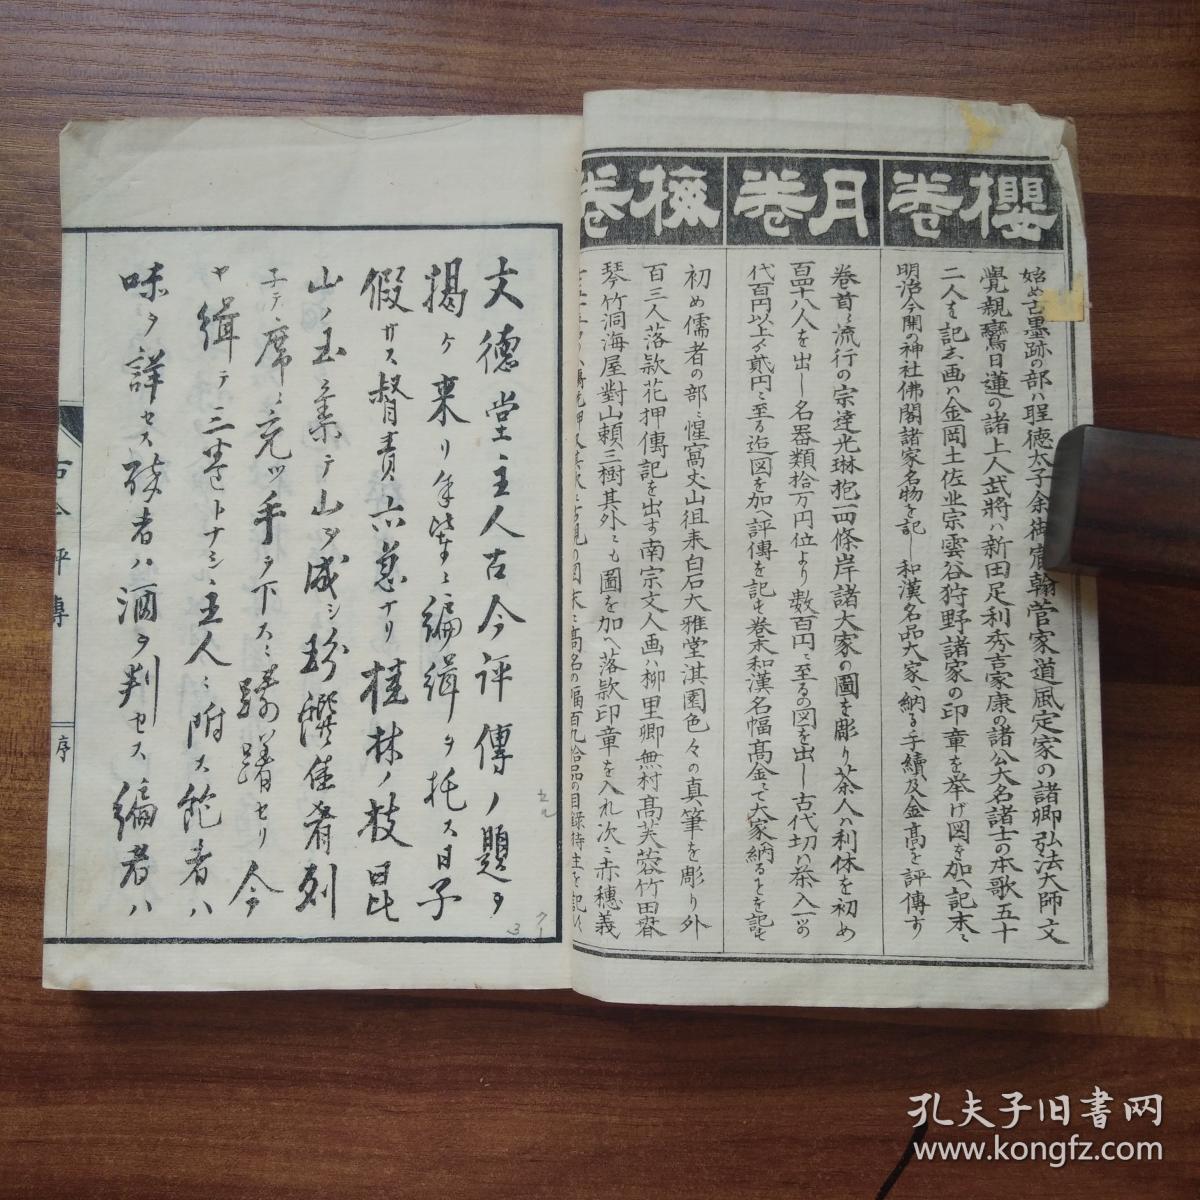 櫻卷
始め古墨跡の部ハ聖徳太子余御宸翰菅家道風定家の諸卿弘法大師文
覺親鸞日蓮の諸上人武將ハ新田足利秀吉家康の諸公大名諸士の本歌五十
二人を記し画ハ金岡土佐光宗雲谷狩野諸家の印章を举げ図を加へ記末ニ
明治今開の神社佛閣諸家名物を記し和漢名品大家ヘ納る手續及金高を評傳す
月卷
卷首ニ流行の宗達光琳抱一四條岸諸大家の圖を彫り茶人ハ利休を初め
百四十八人を出し名器類拾万円位より数百円ニ至るの図を出し古代切ハ茶入一ツの
代百円以上ゟ貳円ニ至る迄図を加へ評傳を記も卷末和漢名幅高金ニて大家納るとを記も
初め儒者の部ニ惺窩丈山徂来白石大雅堂淇園色々の真筆を彫り外
百三人落款花押傳記を出す南宗文人画ハ柳里卿無村高芙蓉竹田春
琴竹洞海屋對山頼三樹其外ニも圖を加へ落款印章を入れ次ニ赤穗義
文德堂主人古今評傳ノ題ヲ
揭ケ来リ余ニ編緝ヲ托ス日子
假サス督責亦急ナリ桂林ノ枝昆
山ノ玉集テ山ヲ成シ珍饌佳肴列
子テ席ニ充ツ手ヲ下スニ躊躇セリ今
ヤ緝テ三卷トナシ主人ニ附ス飽者ハ
味ヲ詳セス酔者ハ酒ヲ判セス編者ハ
古今評傳
序
孔夫子旧书网
www.kongfz.com